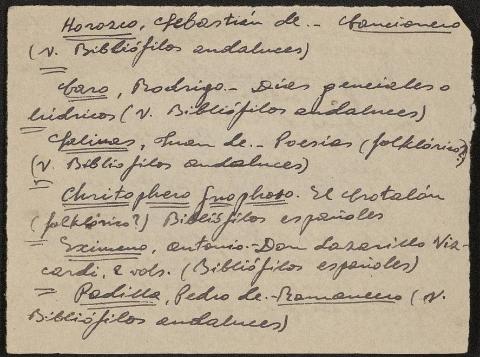 Horozco, Sebastián de.- Cancionero
(v. Bibliófilos andaluces)
Caro, Rodrigo.- Días geniales o
lúdricos (v. Bibliófilos andaluces)
Salinas, Juan de.- Poesías (folklórico?)
(v. Bibliófilos andaluces)
Christophero Gnophoso. El Crotalón
(folklórico?) Bibliófilos españoles
Eximeno, Antonio.- Don Lazarillo Viz-
cardi, 2 vols. (Bibliófilos españoles)
Padilla, Pedro de.- Romancero (v.
Bibliófilos andaluces)